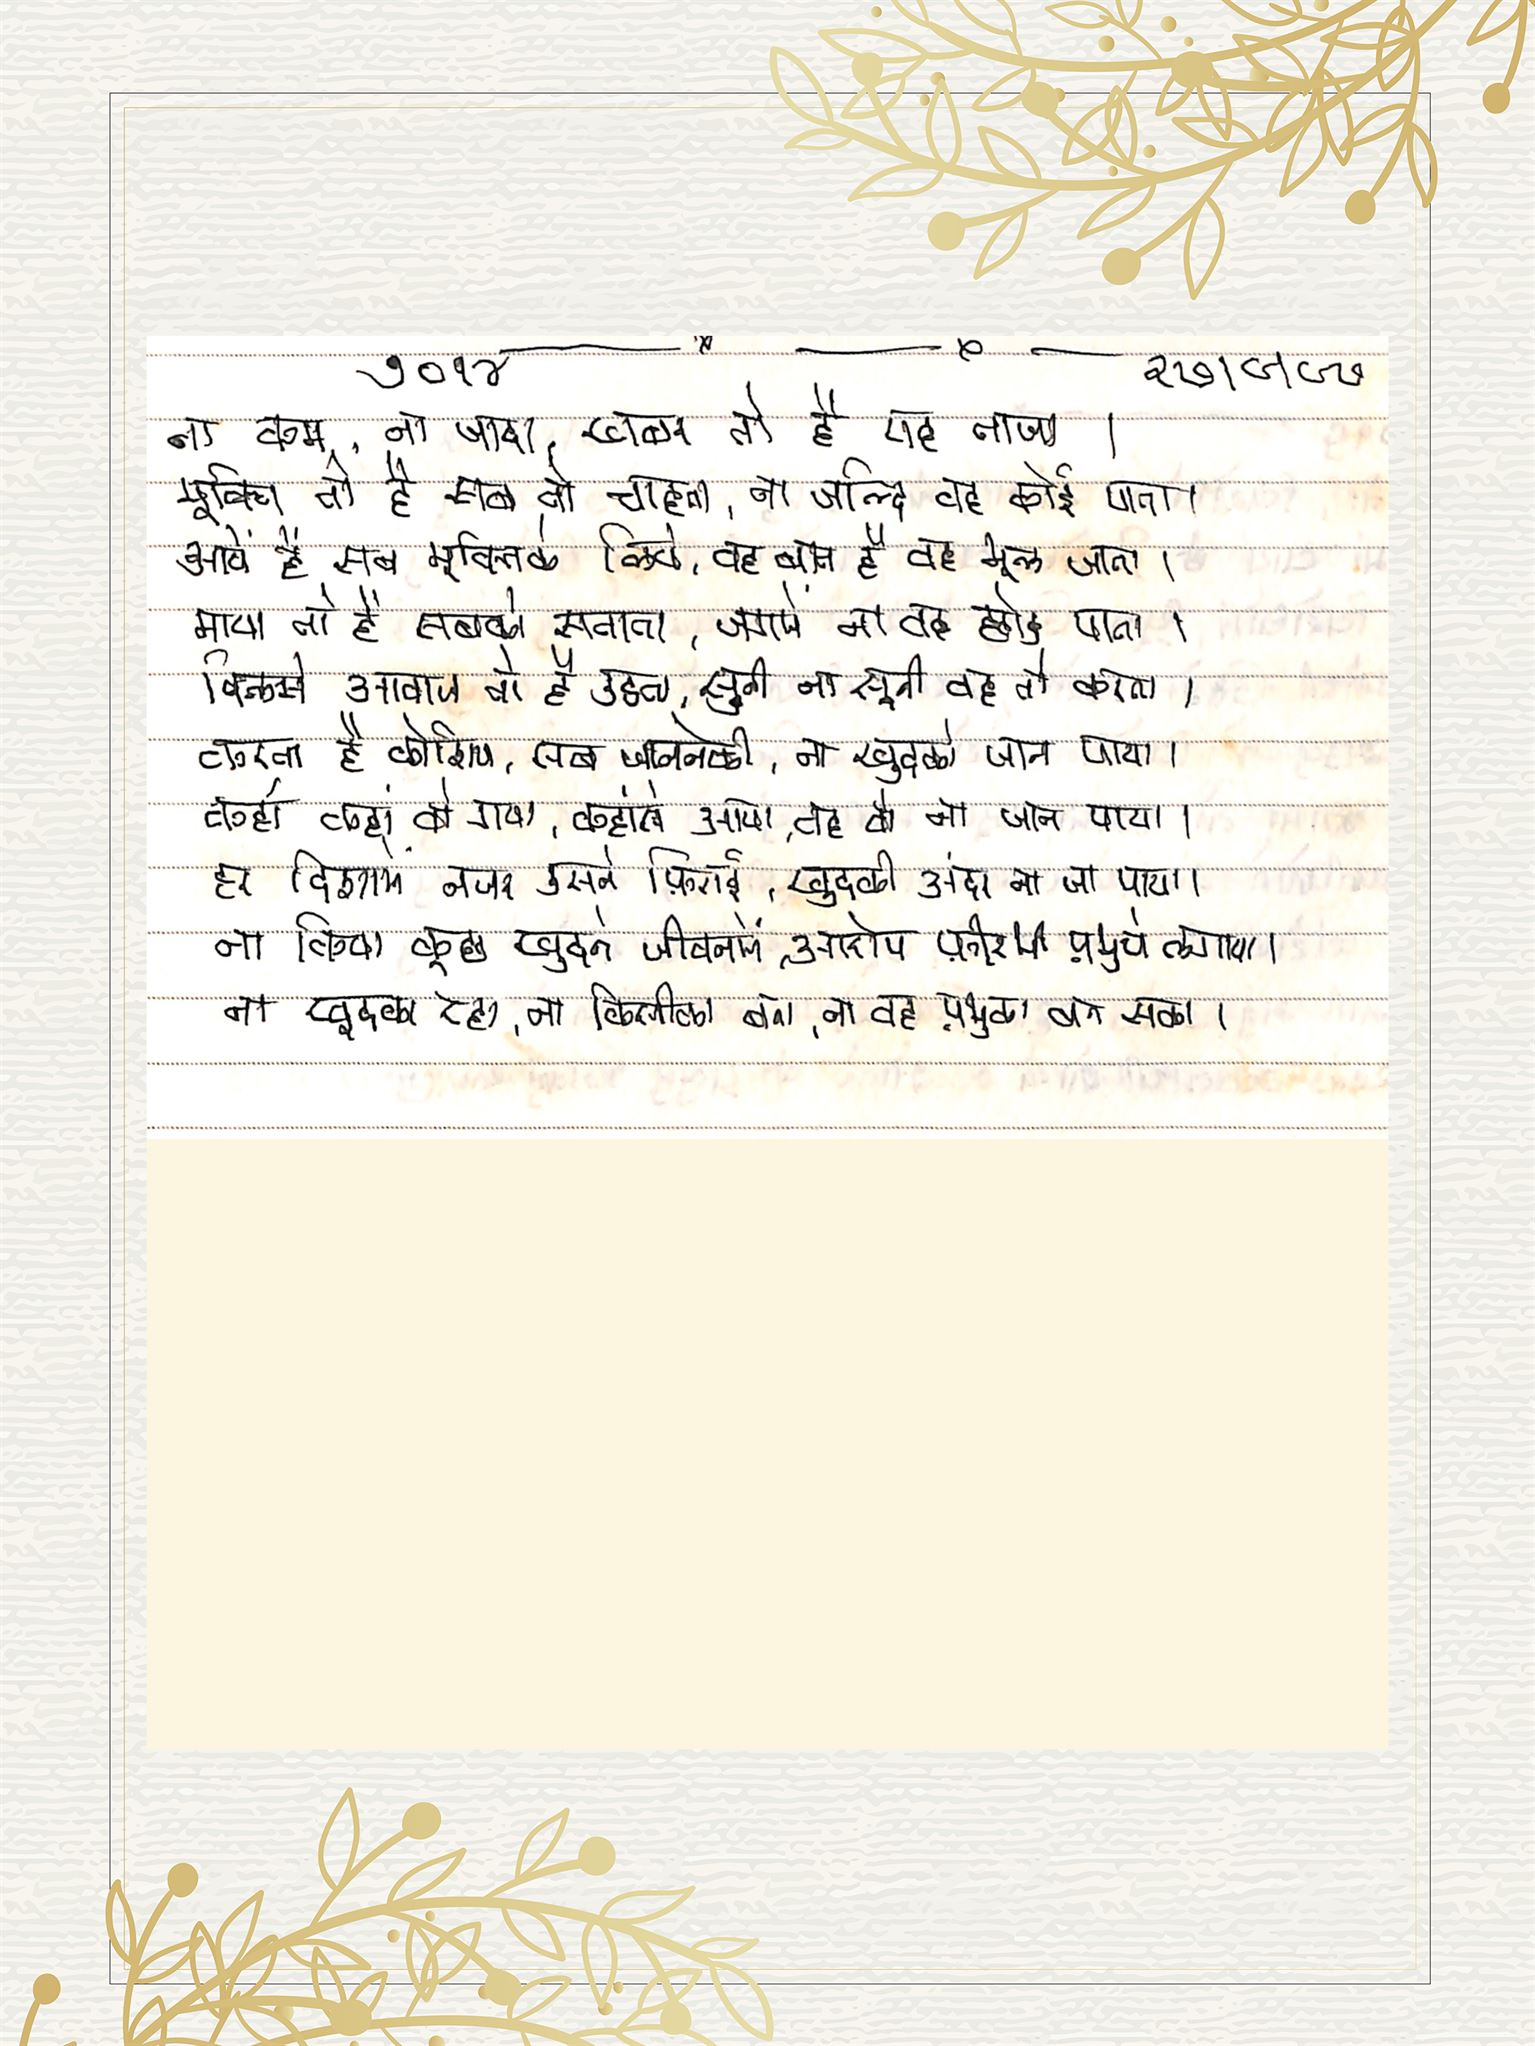 ७०१४ २७।८।८७
ना कम, ना जादा, खबर तो है यह ताजा ।
मूक्ति तो है सब तो चाहता, ना जल्दि वह कोई पाता।
आयें है सब मूक्तिके लिये, वह बात है वह भूल जाता ।
माया तो है सबको सताता, जगमें ना वह छोड पाता ।
दिलसे आवाज तो है उठता, सुनी ना सूनी वह तो करता ।
करता है कोशिष, सब जाननेकी, ना खुदको जान पाया ।
कहाँ कहां वो गया, कहांसे आया, वह तो ना जान पाया।
हर दिशामें नजर उसने फ़िराई, खुदकी अंदर ना जा पाया।
ना किया कूछ खुदने जीवनमें, आरोप फ़ीरभी प्रभुपे लगाया।
ना खूदका रहा, ना किसीका बना, ना वह प्रभुका बन सका ।